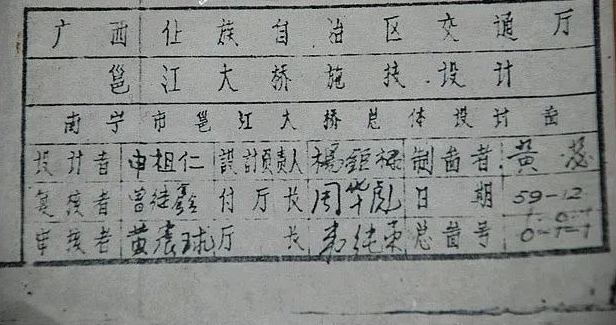 广西仕族自治区交通厅
邕江大桥施技设计
南宁市邕江大桥总体设计啚
设计者 申祖仁 設計負責人 楊鉅 制啚者 黄
复核者 曾纽鑫 付厅长 周华彪 日期 59-12
审核者 黄寰球 厅长 纯荣 总啚号 0-1-1